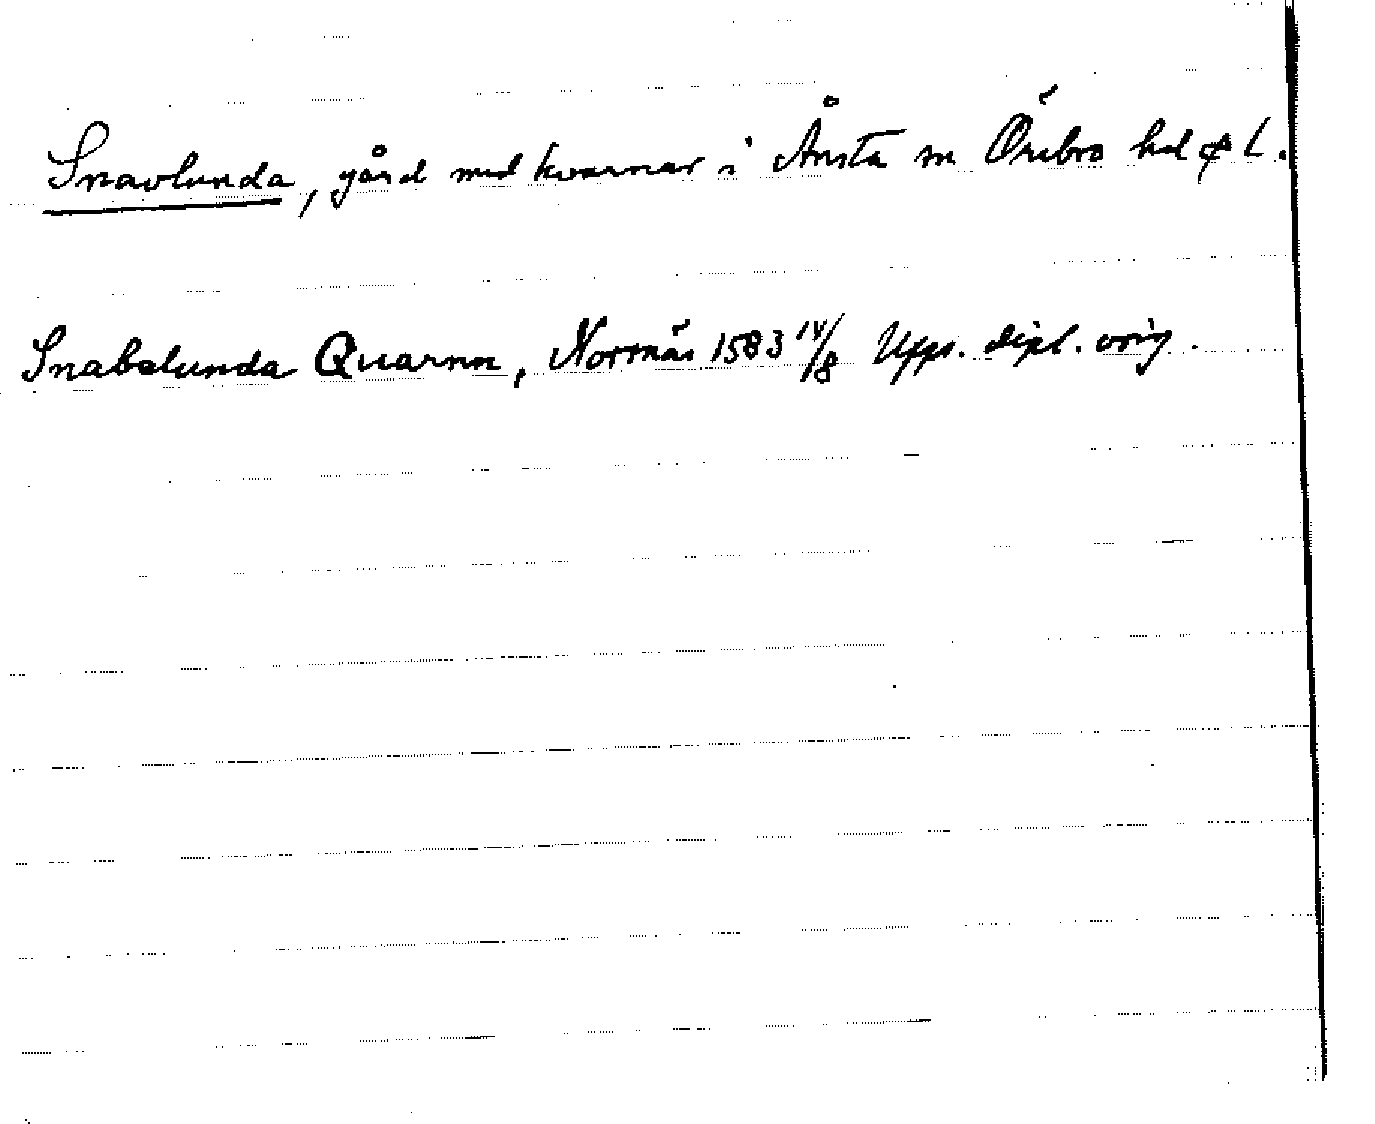 Snavlunda, gård med kvarnar i Ånsta sn Örebro hd o L.
Snabelunda Quarnn, Norrnäs 1583 14/8 Upps. dipl. orig.